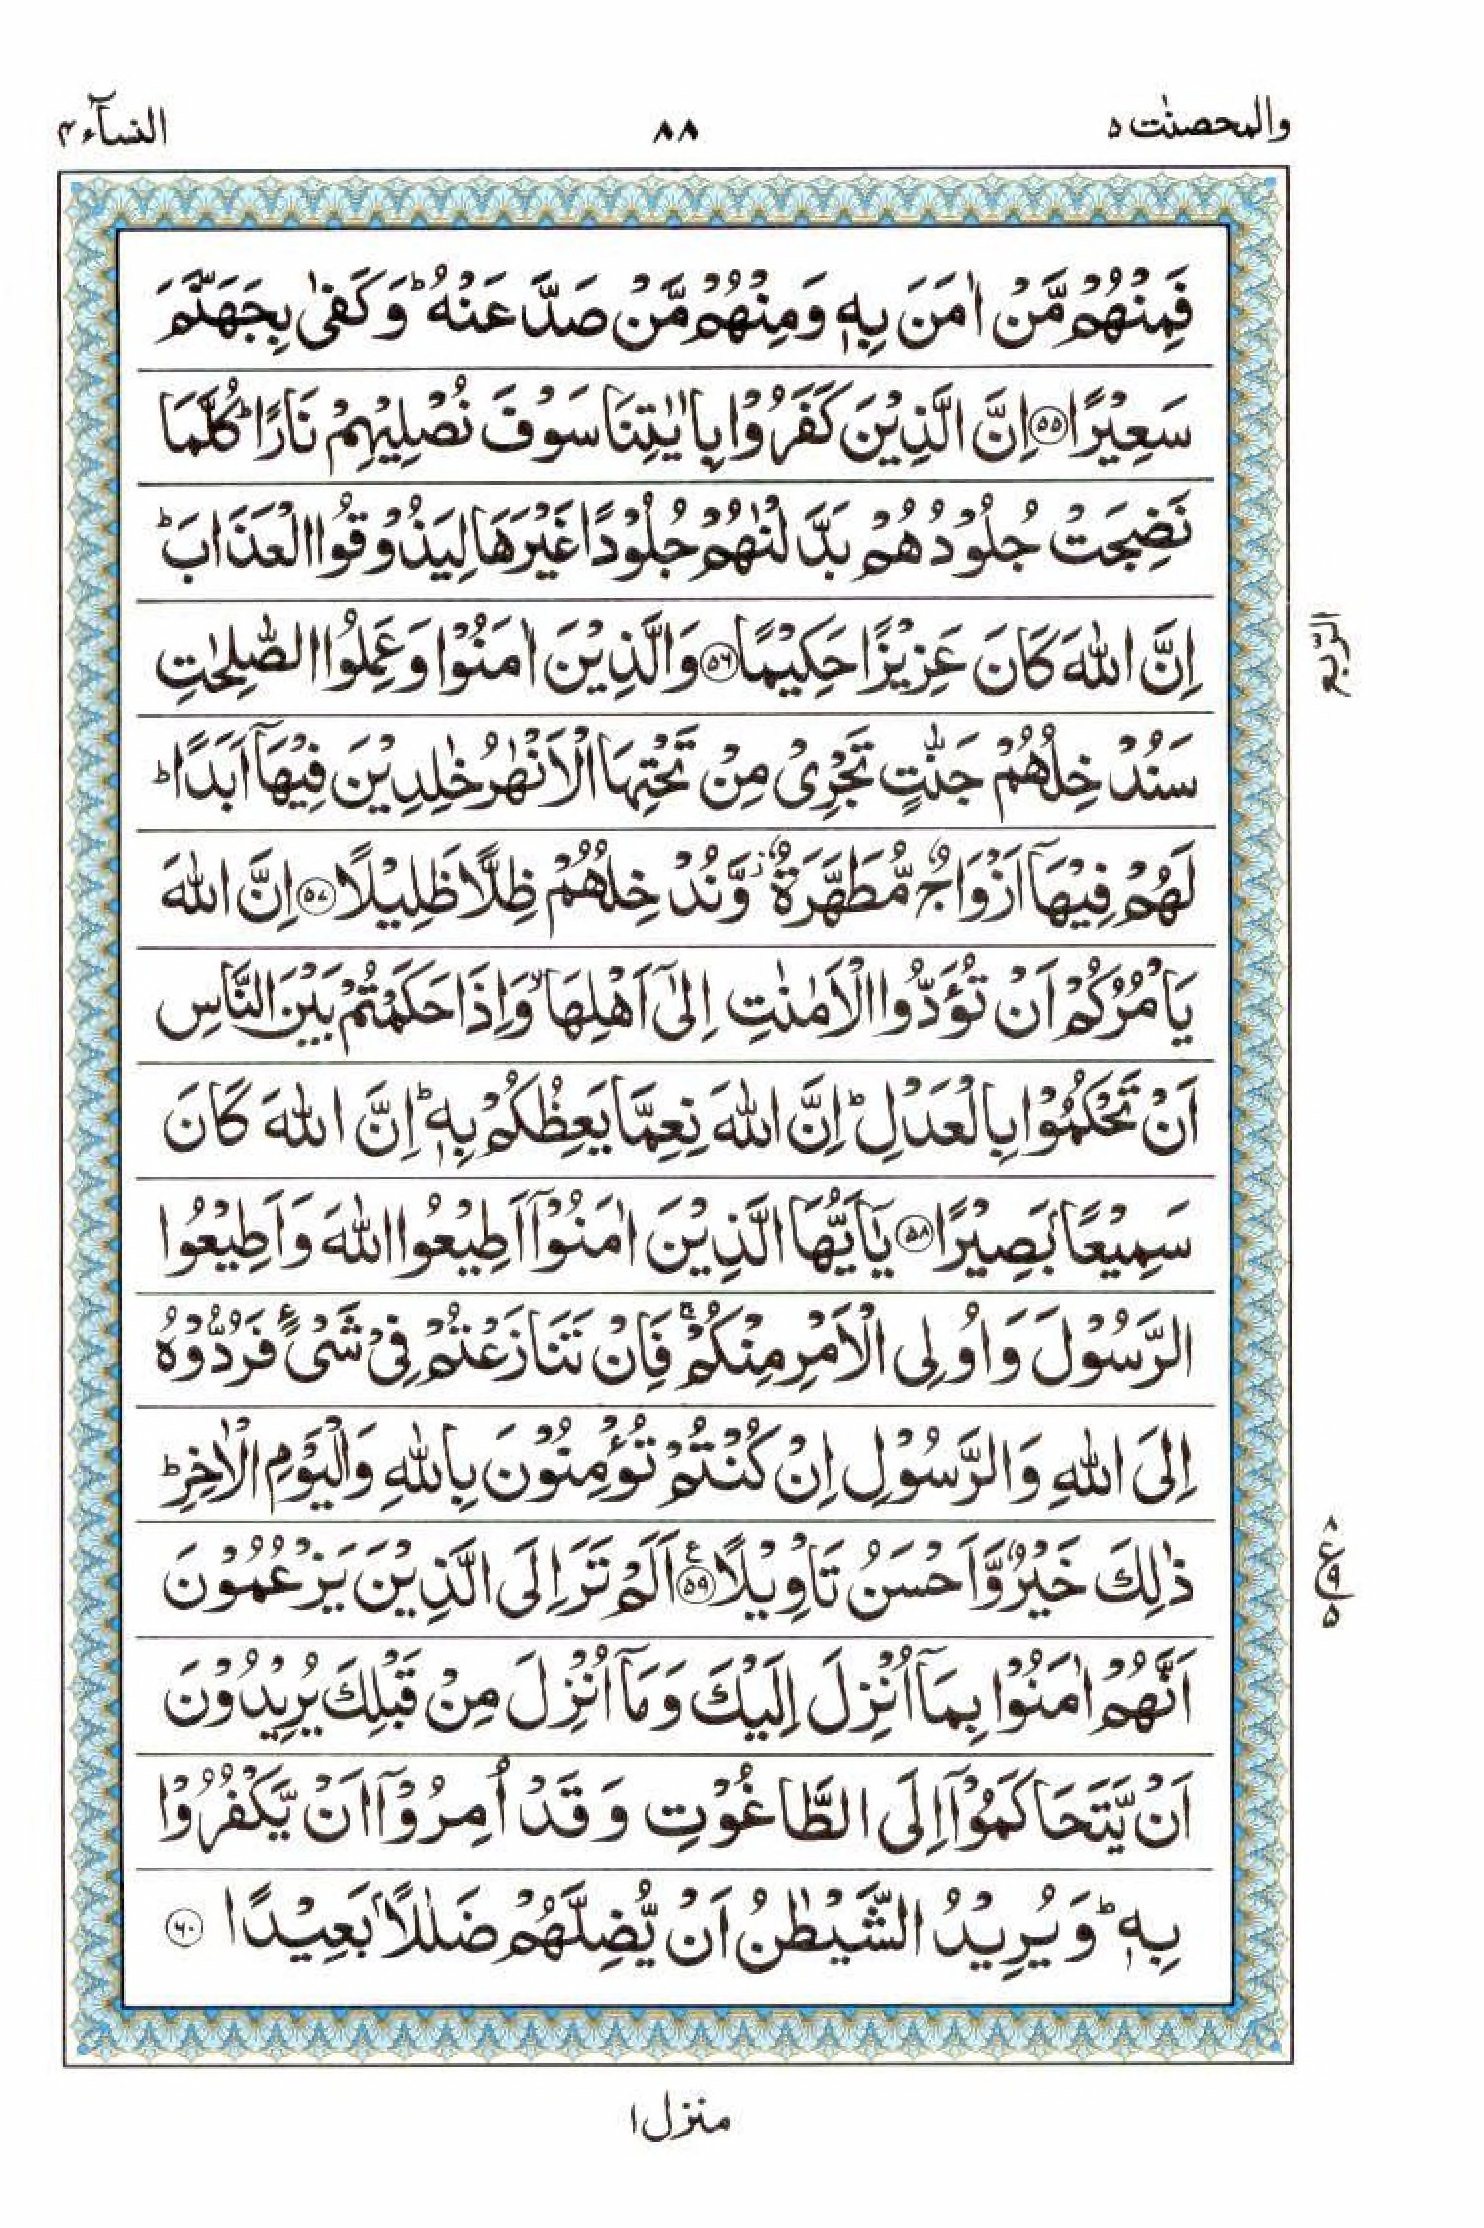 والمحصنٰت ۵
٨٨
النسآء ۴
فَمِنْهُمْ مَّنْ اٰمَنَ بِهٖ وَمِنْهُمْ مَّنْ صَدَّ عَنْهُ ؕ وَكَفٰى بِجَهَنَّمَ
سَعِيْرًا ﴿۵۵﴾ اِنَّ الَّذِيْنَ كَفَرُوْا بِاٰيٰتِنَا سَوْفَ نُصْلِيْهِمْ نَارًا ؕ كُلَّمَا
نَضِجَتْ جُلُوْدُهُمْ بَدَّلْنٰهُمْ جُلُوْدًا غَيْرَهَا لِيَذُوْقُوا الْعَذَابَ ؕ
اِنَّ اللّٰهَ كَانَ عَزِيْزًا حَكِيْمًا ﴿۵۶﴾ وَالَّذِيْنَ اٰمَنُوْا وَعَمِلُوا الصّٰلِحٰتِ
الرّبع
سَنُدْخِلُهُمْ جَنّٰتٍ تَجْرِيْ مِنْ تَحْتِهَا الْاَنْهٰرُ خٰلِدِيْنَ فِيْهَآ اَبَدًا ؕ
لَهُمْ فِيْهَآ اَزْوَاجٌ مُّطَهَّرَةٌ ؗ وَّنُدْخِلُهُمْ ظِلًّا ظَلِيْلًا ﴿۵۷﴾ اِنَّ اللّٰهَ
يَاْمُرُكُمْ اَنْ تُؤَدُّوا الْاَمٰنٰتِ اِلٰٓى اَهْلِهَا ۙ وَاِذَا حَكَمْتُمْ بَيْنَ النَّاسِ
اَنْ تَحْكُمُوْا بِالْعَدْلِ ؕ اِنَّ اللّٰهَ نِعِمَّا يَعِظُكُمْ بِهٖ ؕ اِنَّ اللّٰهَ كَانَ
سَمِيْعًۢا بَصِيْرًا ﴿۵۸﴾ يٰٓاَيُّهَا الَّذِيْنَ اٰمَنُوْٓا اَطِيْعُوا اللّٰهَ وَاَطِيْعُوا
الرَّسُوْلَ وَاُولِى الْاَمْرِ مِنْكُمْ ۚ فَاِنْ تَنَازَعْتُمْ فِيْ شَيْءٍ فَرُدُّوْهُ
اِلَى اللّٰهِ وَالرَّسُوْلِ اِنْ كُنْتُمْ تُؤْمِنُوْنَ بِاللّٰهِ وَالْيَوْمِ الْاٰخِرِ ؕ
ذٰلِكَ خَيْرٌ وَّاَحْسَنُ تَاْوِيْلًا ﴿۵۹﴾ ع اَلَمْ تَرَ اِلَى الَّذِيْنَ يَزْعُمُوْنَ
٨ ع ٩ ۵
اَنَّهُمْ اٰمَنُوْا بِمَآ اُنْزِلَ اِلَيْكَ وَمَآ اُنْزِلَ مِنْ قَبْلِكَ يُرِيْدُوْنَ
اَنْ يَّتَحَاكَمُوْٓا اِلَى الطَّاغُوْتِ وَقَدْ اُمِرُوْٓا اَنْ يَّكْفُرُوْا
بِهٖ ؕ وَيُرِيْدُ الشَّيْطٰنُ اَنْ يُّضِلَّهُمْ ضَلٰلًۢا بَعِيْدًا ﴿۶۰﴾
منزل ۱